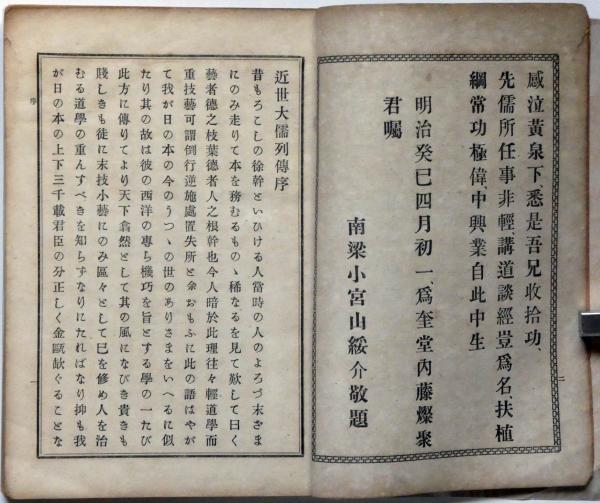 感泣黃泉下、悉是吾兄收拾功、
先儒所任事非輕、講道談經豈爲名、扶植
綱常功極偉、中興業自此中生
明治癸巳四月初一、爲奎堂內藤燦聚
君囑
南梁小宮山綏介敬題
二
近世大儒列傳序
昔もろこしの徐幹といひける人當時の人のよろづ末ざま
にのみ走りて本を務むるものゝ稀なるを見て歎して曰く
藝者德之枝葉德者人之根幹也今人暗於此理往々輕道學而
重技藝可謂倒行逆施處置失所と余おもふに此の語はやが
て我が日の本の今のうつゝの世のありさまをいへるに似
たり其の故は彼の西洋の專ら機巧を旨とする學の一たび
此方に傳りてより天下翕然として其の風になびき貴きも
賤しきも徒に末技小藝にのみ區々として巳を修め人を治
むる道學の重んすべきを知らずなりにたればなり抑も我
が日の本の上下三千載君臣の分正しく金甌欹ぐることな
序
一